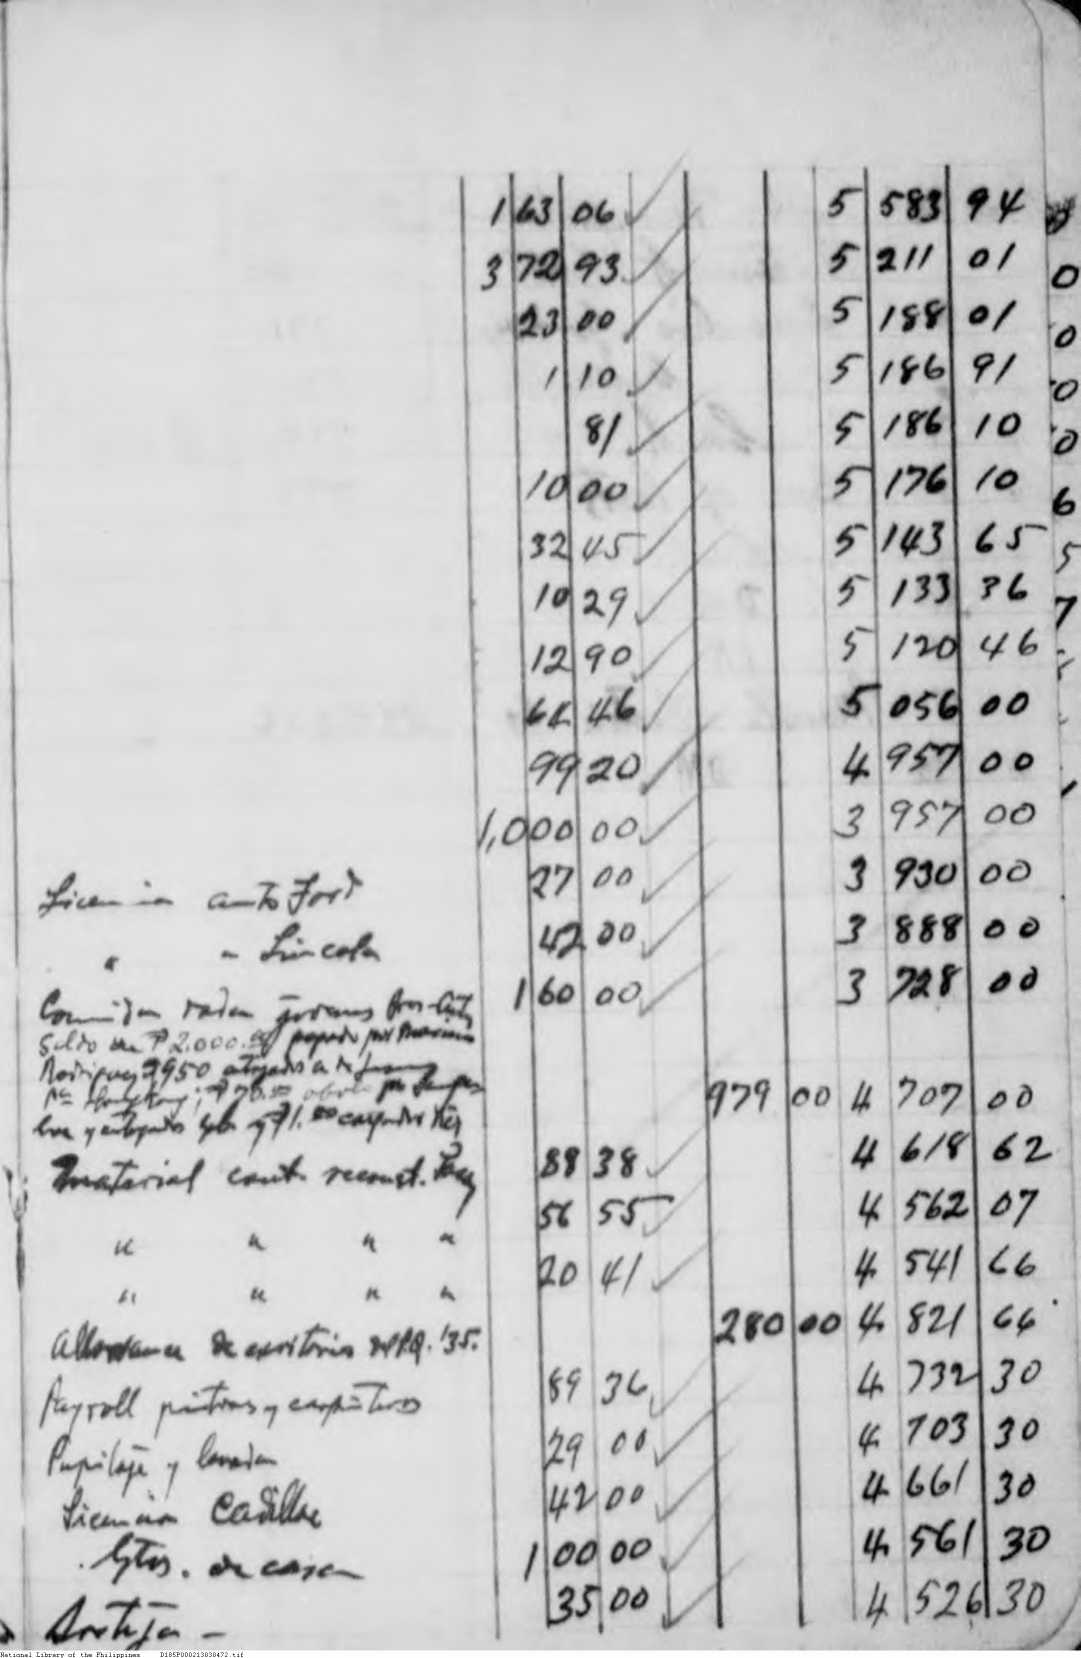 1 63 06 5 583 94
3 72 93 5 211 01
23 00 5 188 01
1 10 5 186 91
81 5 186 10
10 00 5 176 10
32 45 5 143 65
10 29 5 133 36
12 90 5 120 46
64 46 5 056 00
99 20 4 957 00
1,000 00 3 957 00
Licencia auto Ford 27 00 3 930 00
" " Lincoln 42 00 3 888 00
1 60 00 3 728 00
Saldo de ₱2.000.00 pagado por
Rodriguez ₱950
979 00 4 707 00
y ₱1.00
Material cont. reconst. 88 38 4 618 62
" " " " 56 55 4 562 07
" " " " 20 41 4 541 66
Allowance de escritorio '35. 280 00 4 821 66
Payroll pintores y carpinteros 89 36 4 732 30
Pupilaje y lavado 29 00 4 703 30
Licencia Cadillac 42 00 4 661 30
Gtos. de casa 1 00 00 4 561 30
35 00 4 526 30
National Library of the Philippines D185P000213838472.tif